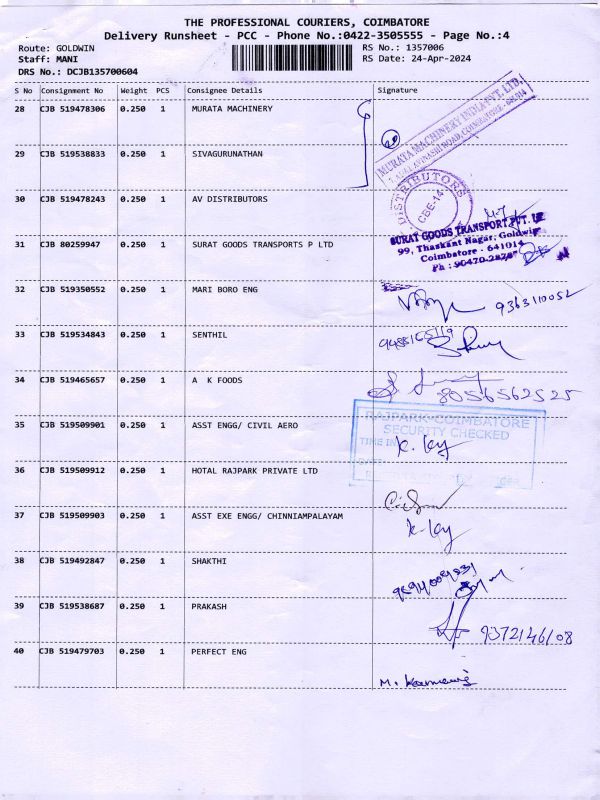 THE PROFESSIONAL COURIERS, COIMBATORE
Delivery Runsheet - PCC - Phone No.:0422-3505555 - Page No.:4
Route: GOLDWIN RS No.: 1357006
Staff: MANI RS Date: 24-Apr-2024
DRS No.: DCJB135700604
S No Consignment No Weight PCS Consignee Details Signature
28 CJB 519478306 0.250 1 MURATA MACHINERY
MURATA MACHINERY INDIA PVT. LTD.
29 CJB 519538833 0.250 1 SIVAGURUNATHAN
30 CJB 519478243 0.250 1 AV DISTRIBUTORS
DISTRIBUTORS
CBE-14
31 CJB 80259947 0.250 1 SURAT GOODS TRANSPORTS P LTD
SURAT GOODS TRANSPORT PVT. LTD
99, Thaskant Nagar, Goldwin
Coimbatore - 641014
32 CJB 519350552 0.250 1 MARI BORO ENG
9363110052
33 CJB 519534843 0.250 1 SENTHIL
34 CJB 519465657 0.250 1 A K FOODS
8056562525
35 CJB 519509901 0.250 1 ASST ENGG/ CIVIL AERO
RAJPARK-COIMBATORE
SECURITY CHECKED
TIME IN
36 CJB 519509912 0.250 1 HOTAL RAJPARK PRIVATE LTD
37 CJB 519509903 0.250 1 ASST EXE ENGG/ CHINNIAMPALAYAM
38 CJB 519492847 0.250 1 SHAKTHI
39 CJB 519538687 0.250 1 PRAKASH
40 CJB 519479703 0.250 1 PERFECT ENG